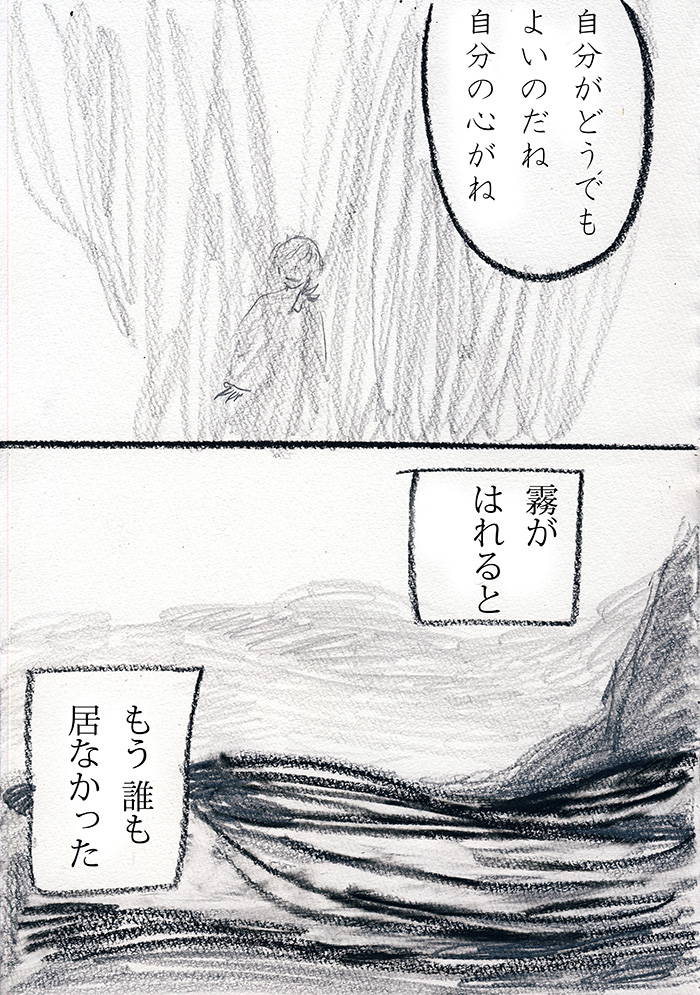 自分がどうでも
よいのだね
自分の心がね
霧が
はれると
もう 誰も
居なかった